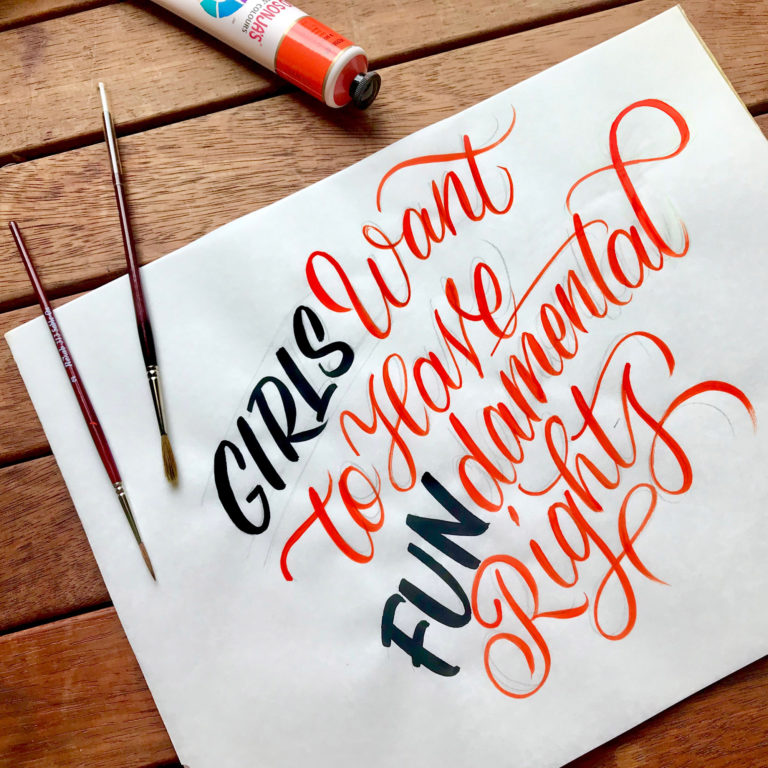 SONJA'S
GIRLS Want
to Have
FUNdamental
Rights